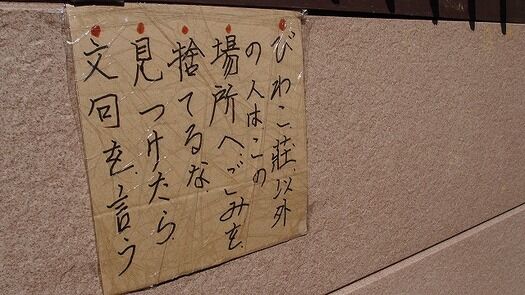 びわこ荘以外
の人はこの
場所へごみを
捨てるな
見つけたら
文句を言う